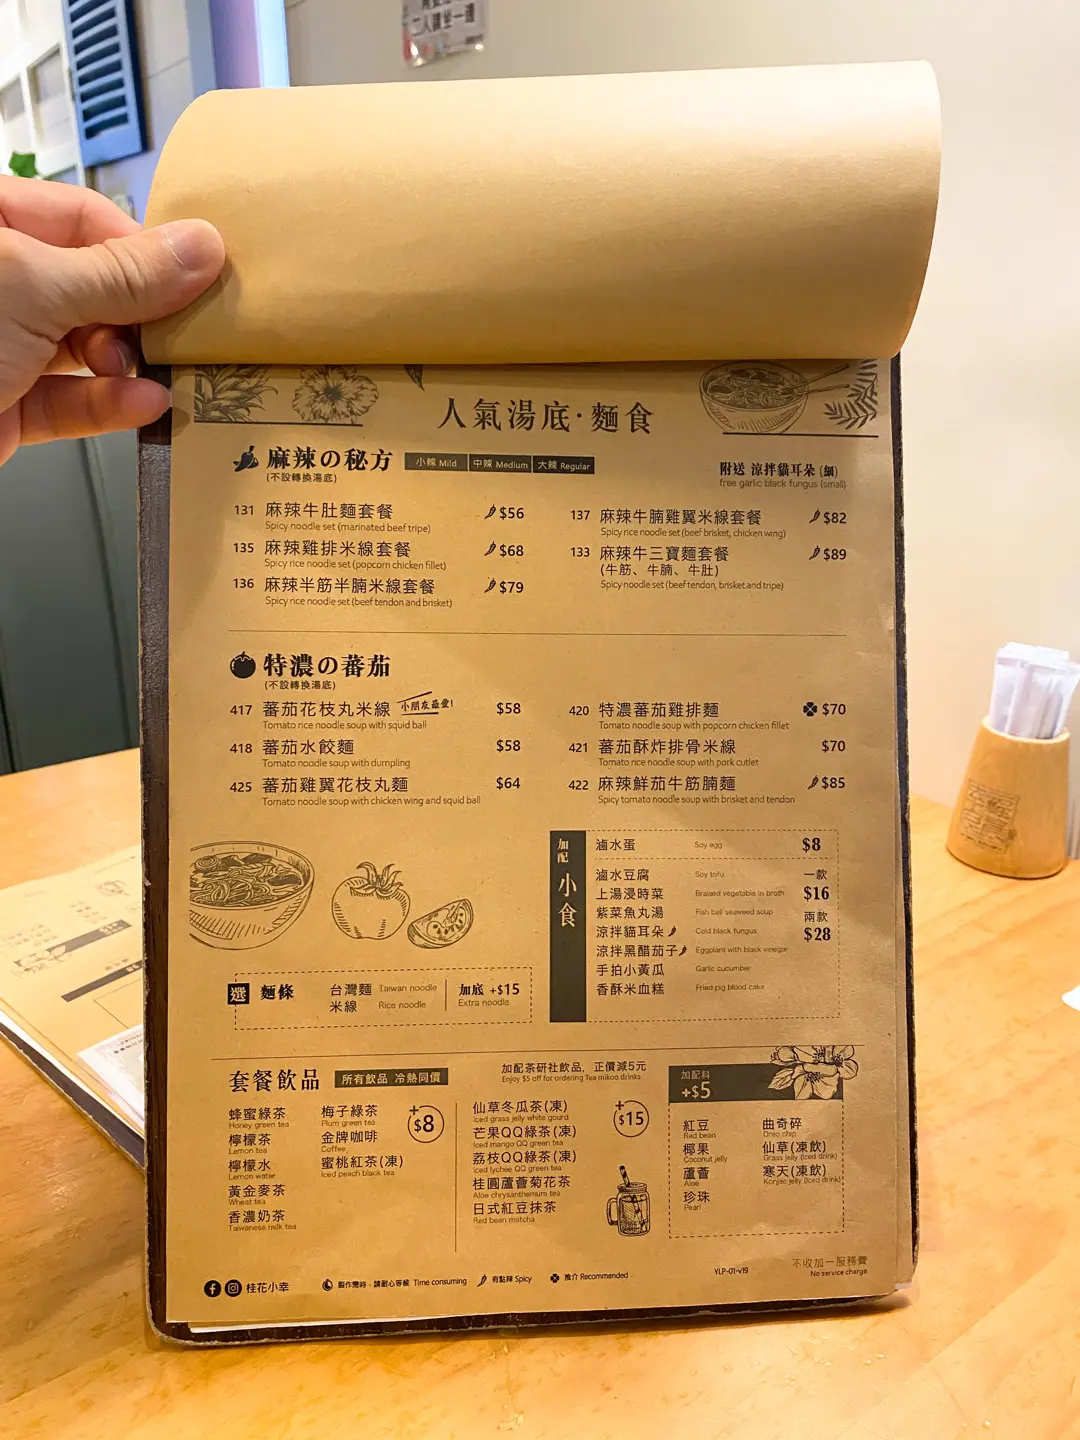 二人請坐一邊
人氣湯底·麵食
麻辣の秘方
小辣 Mild 中辣 Medium 大辣 Regular
(不設轉換湯底)
附送 涼拌貓耳朵 (細)
free garlic black fungus (small)
131 麻辣牛肚麵套餐 $56
Spicy noodle set (marinated beef tripe)
135 麻辣雞排米線套餐 $68
Spicy rice noodle set (popcorn chicken fillet)
136 麻辣半筋半腩米線套餐 $79
Spicy rice noodle set (beef tendon and brisket)
137 麻辣牛腩雞翼米線套餐 $82
Spicy rice noodle set (beef brisket, chicken wing)
133 麻辣牛三寶麵套餐 $89
(牛筋、牛腩、牛肚)
Spicy noodle set (beef tendon, brisket and tripe)
特濃の蕃茄
(不設轉換湯底)
417 蕃茄花枝丸米線 小朋友最愛! $58
Tomato rice noodle soup with squid ball
418 蕃茄水餃麵 $58
Tomato noodle soup with dumpling
425 蕃茄雞翼花枝丸麵 $64
Tomato noodle soup with chicken wing and squid ball
420 特濃蕃茄雞排麵 $70
Tomato noodle soup with popcorn chicken fillet
421 蕃茄酥炸排骨米線 $70
Tomato rice noodle soup with pork cutlet
422 麻辣鮮茄牛筋腩麵 $85
Spicy tomato noodle soup with brisket and tendon
加配 小食
滷水蛋 Soy egg $8
滷水豆腐 Soy tofu 一款
上湯浸時菜 Braised vegetable in broth $16
紫菜魚丸湯 Fish ball seaweed soup 兩款
涼拌貓耳朵 Cold black fungus $28
涼拌黑醋茄子 Eggplant with black vinegar
手拍小黃瓜 Garlic cucumber
香酥米血糕 Fried pig blood cake
選 麵條
台灣麵 Taiwan noodle
米線 Rice noodle
加底 +$15
Extra noodle
套餐飲品 所有飲品 冷熱同價
加配茶研社飲品，正價減5元
Enjoy $5 off for ordering Tea mikoo drinks
蜂蜜綠茶
Honey green tea
檸檬茶
Lemon tea
檸檬水
Lemon water
黃金麥茶
Wheat tea
香濃奶茶
Taiwanese milk tea
梅子綠茶
Plum green tea
金牌咖啡
Coffee
蜜桃紅茶(凍)
Iced peach black tea
+$8
仙草冬瓜茶(凍)
Iced grass jelly white gourd
芒果QQ綠茶(凍)
Iced mango QQ green tea
荔枝QQ綠茶(凍)
Iced lychee QQ green tea
桂圓蘆薈菊花茶
Aloe chrysanthemum tea
日式紅豆抹茶
Red bean matcha
+$15
加配料
+$5
紅豆
Red bean
椰果
Coconut jelly
蘆薈
Aloe
珍珠
Pearl
曲奇碎
Oreo chip
仙草(凍飲)
Grass jelly (Iced drink)
寒天(凍飲)
Konjac jelly (Iced drink)
不收加一服務費
No service charge
桂花小幸
製作需時，請耐心等候 Time consuming
有點辣 Spicy
推介 Recommended
YLP-01-v19